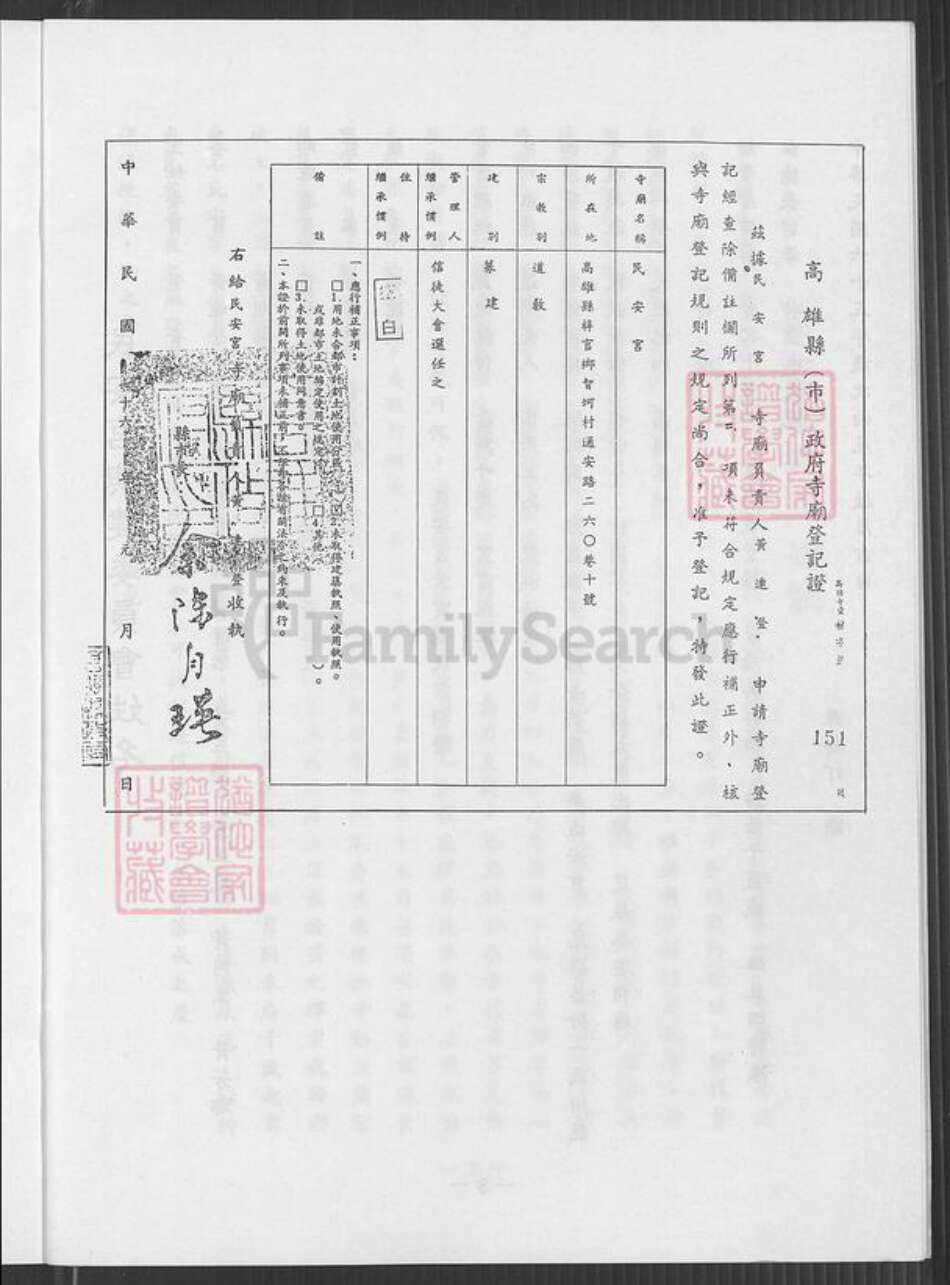 高雄縣(市)政府寺廟登記證
151
茲據民安宮 寺廟負責人黃進登.申請寺廟登
記經查除備註欄所列第二項未符合規定應行補正外、核
與寺廟登記規則之規定尚合,准予登記,特發此證。
寺廟名稱 民安宮
所在地 高雄縣梓官鄉智蚵村通安路二六〇巷十號
宗教別 道教
建別 募建
管理人繼承慣例 信徒大會選任之
住持繼承慣例 空白
備註
一、應行補正事項:
□1.用地未合都市計劃土地使用分區
☑2.未取得建築執照、使用執照。
或非都市土地編定使用之規定。
□3.未取得土地使用同意書。
□4.其他( )。
二、本證於前開所列事項未補正前,
右給民安宮寺廟負責人黃進登收執
縣市長 余陳月瑛
中華民國 十六年元月 日
FamilySearch